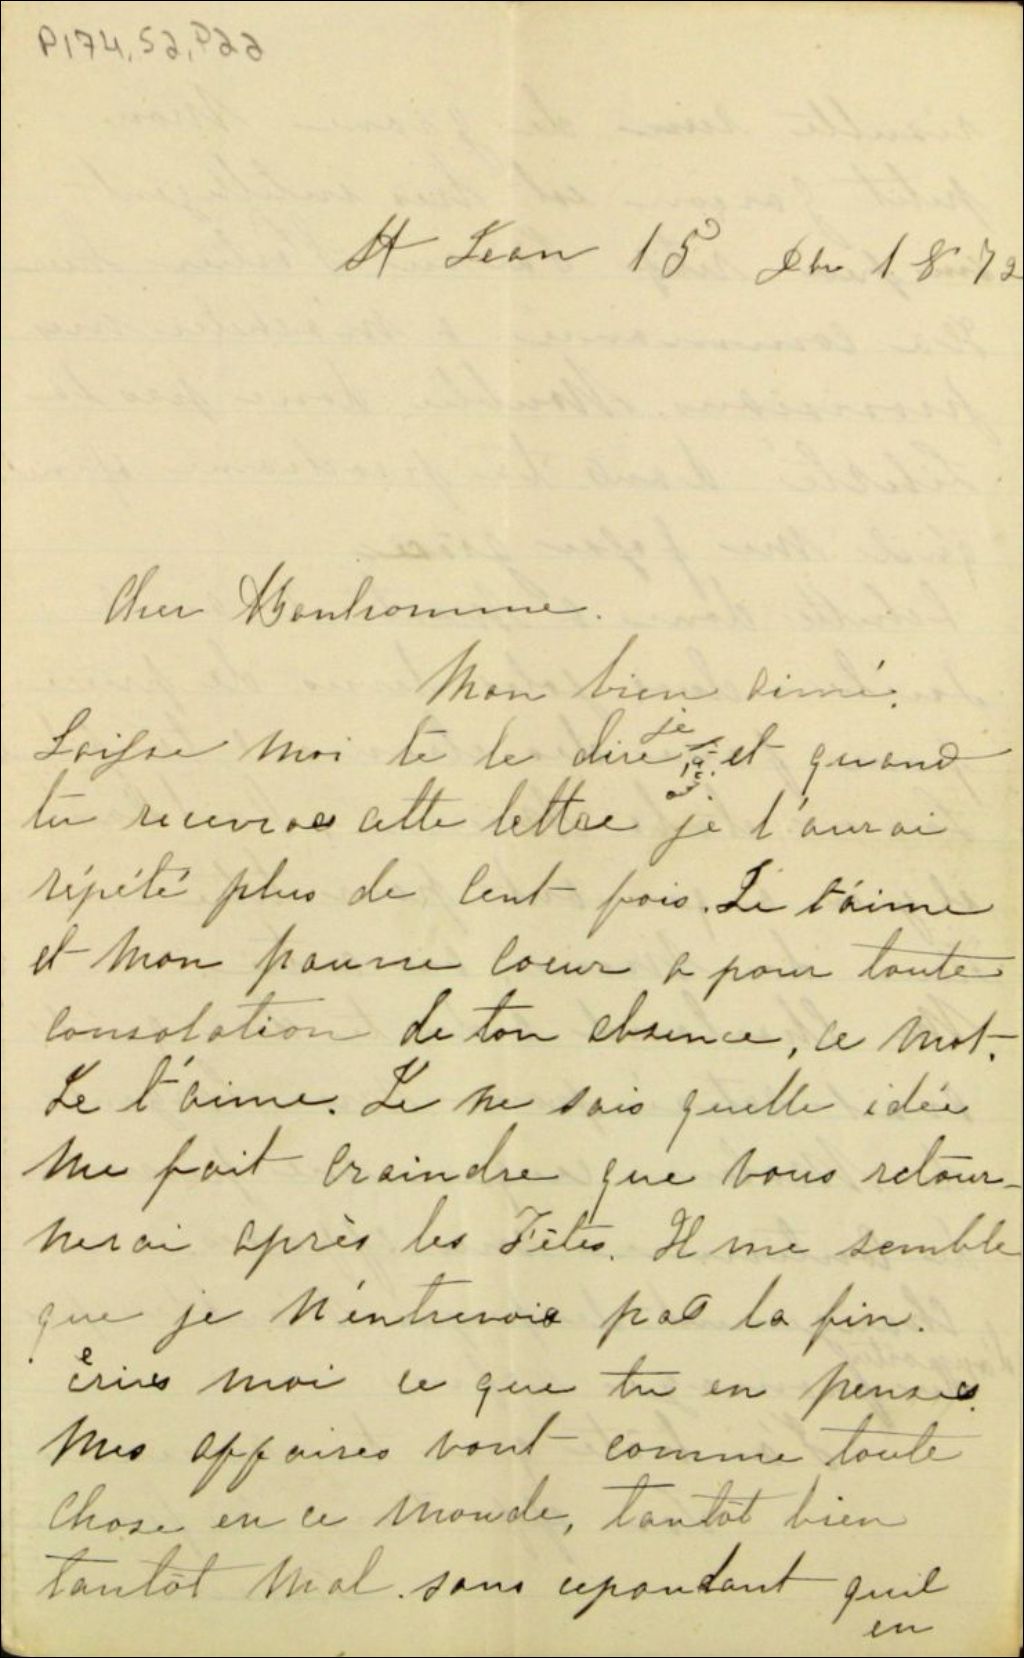 P174,S2,P22
St Jean 15 Dbr 1872
Cher Bonhomme.
Mon bien aimé.
Laisse moi te le dire je et quand
tu recevras cette lettre je l'aurai
répété plus de cent fois. Je t'aime
et mon pauvre coeur a pour toute
consolation de ton absence, ce mot.
Je t'aime. Je ne sais quelle idée
me fait craindre que vous retour-
nerai après les Fêtes. Il me semble
que je n'entrevois pas la fin.
écrives moi ce que tu en penses.
Mes affaires vont comme toute
chose en ce monde, tantôt bien
tantôt mal. sans cependant quil
en